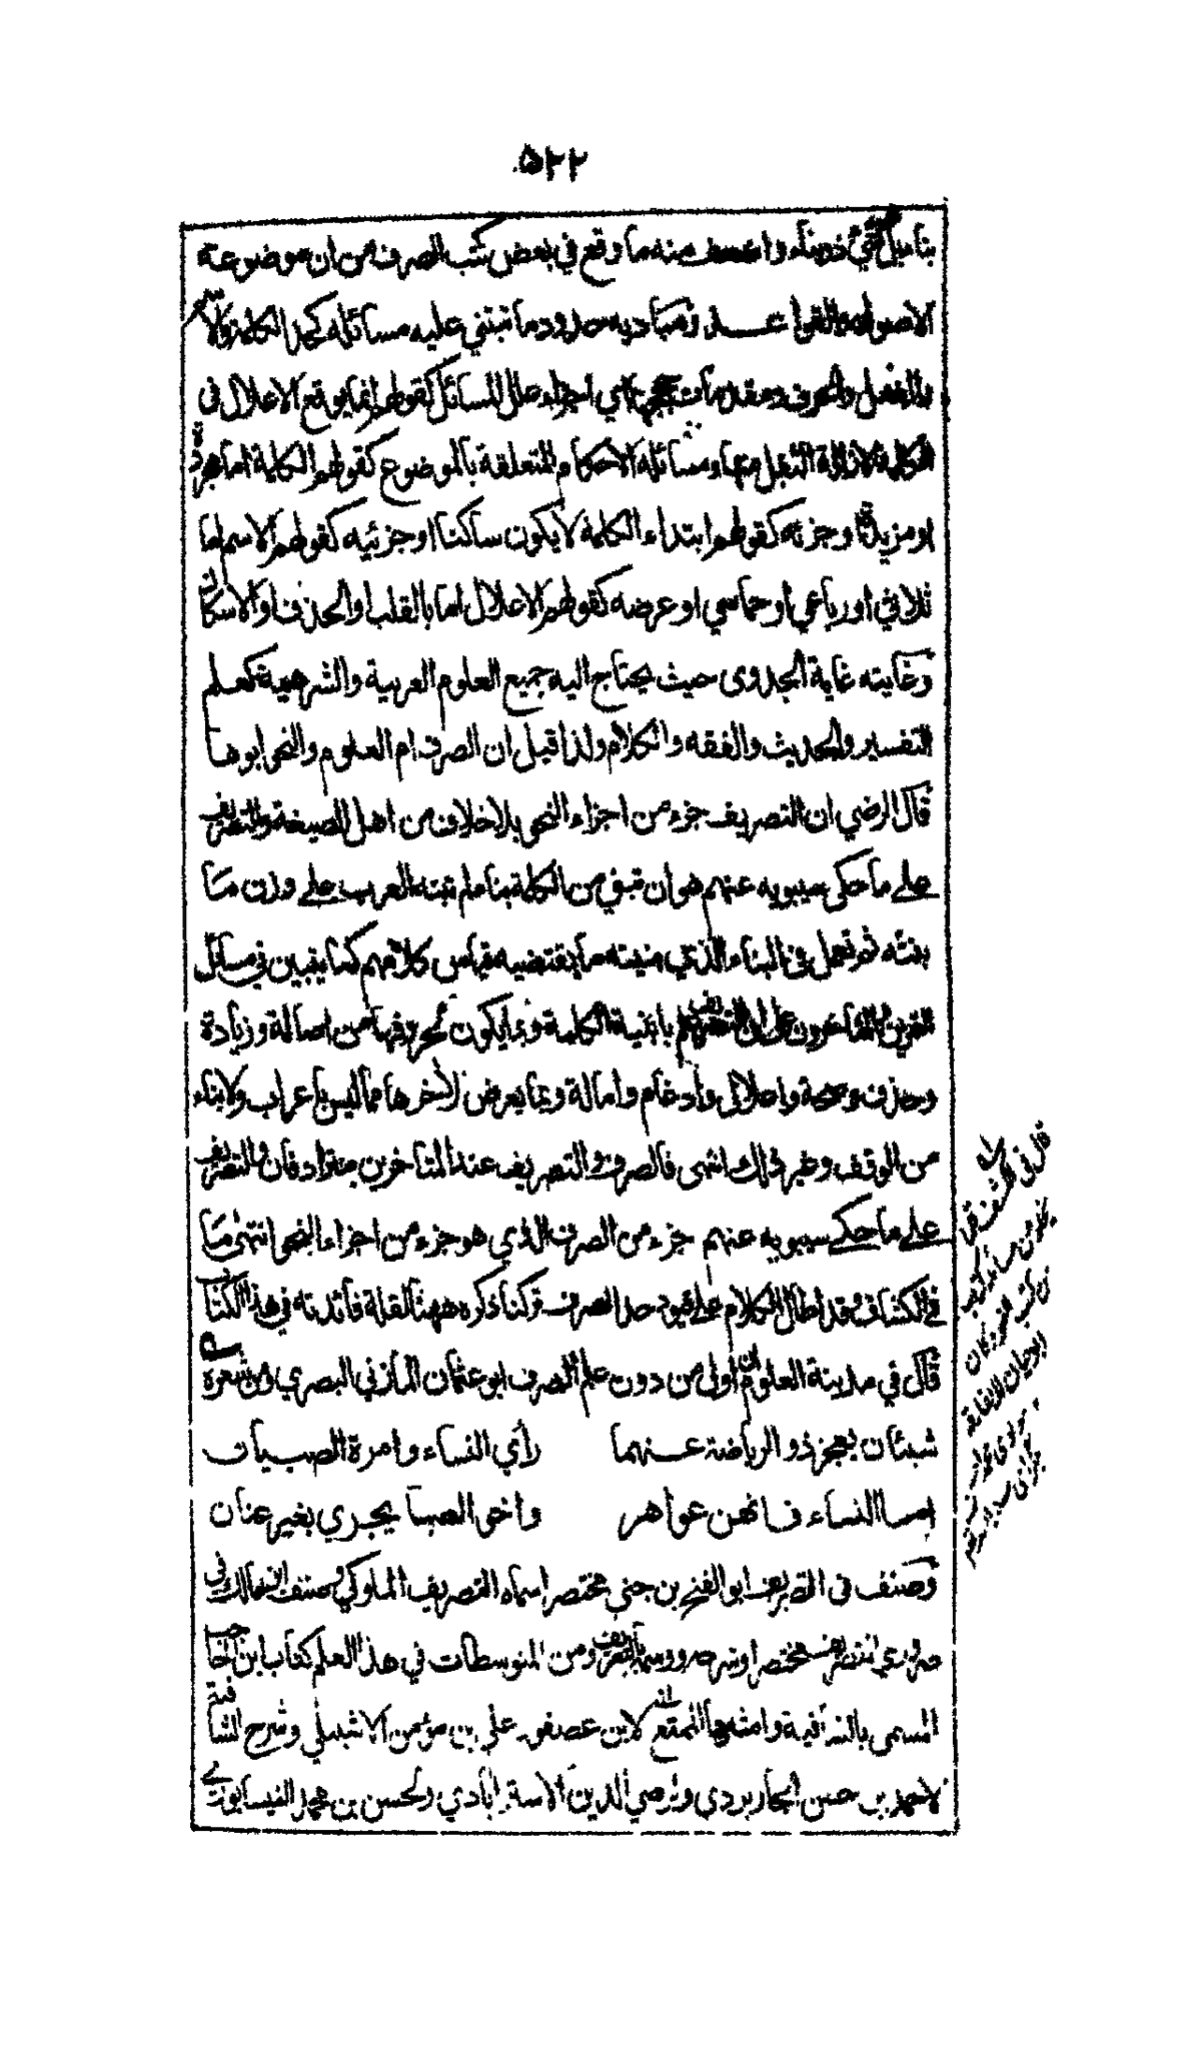 ۵۲۲
منه ما وقع في بعض كتب الصرف من ان موضوعه
الاصول والقواعد ومباديه حدود ما تبتني عليه مسائله كحد الكلمة والاسم
والفعل والحرف ومقدمات اي اجزاء علل المسائل كقولهم انما يوقع الاعلال في
الكلمة لازالة الثقل منها ومسائله الاحكام المتعلقة بالموضوع كقولهم الكلمة اما مجردة
او مزيدة او جزئه كقولهم ابتداء الكلمة لا يكون ساكنا او جزئيه كقولهم الاسم اما
ثلاثي او رباعي او خماسي او عرضه كقولهم الاعلال اما بالقلب او الحذف او الاسكان
وغايته غاية الجدوى حيث يحتاج اليه جميع العلوم العربية والشرعية كعلم
التفسير والحديث والفقه والكلام ولذا قيل ان الصرف ام العلوم والنحو ابوها
قال الرضي ان التصريف جزء من اجزاء النحو بلا خلاف من اهل الصيغة والتصريف
على ما حكى سيبويه عنهم هو ان تبني من الكلمة بناء لم تبنه العرب على وزن ما
بنته ثم تعمل في البناء الذي بنيته ما يقتضيه قياس كلامهم كما يتبين في مسائل
التمرين والمتاخرون على ان التصريف علم بابنية الكلمة وبما يكون لحروفها من اصالة وزيادة
وحذف وصحة واعلال وادغام وامالة وبما يعرض لاخرها مما ليس باعراب ولا بناء
من الوقف وغير ذلك انتهى فالصرف والتصريف عند المتاخرين مترادفان والتصريف
على ما حكى سيبويه عنهم جزء من الصرف الذي هو جزء من اجزاء النحو انتهى ما
في الكشاف وقد اطال الكلام على قيود حد الصرف تركنا ذكره ههنا لقلة فائدته في هذا الكتاب
قال في مدينة العلوم ان اول من دون علم الصرف ابو عثمان المازني البصري ومن شعره
شيئان يعجز ذو الرياضة عنهما راي النساء وامرة الصبيان
اما النساء فانهن عواهر واخو الصبا يجري بغير عنان
وصنف في التصريف ابو الفتح بن جني مختصر اسماه التصريف الملوكي وصنف ابن مالك في
ضروري التصريف مختصرا وشرحه وسماه التعريف ومن المتوسطات في هذا العلم كتاب ابن الحاجب
المسمى بالشافية وامثلها الممتع لابن عصفور علي بن مؤمن الاشبيلي وشرح الشافية
لاحمد بن حسن الجاربردي ولرضي الدين الاسترابادي ولحسن بن محمد النيسابوري